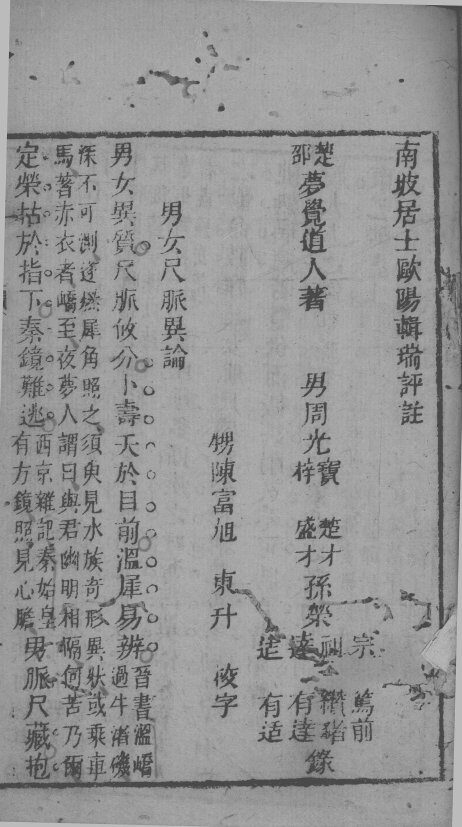 南坡居士歐陽輯瑞評註
楚邵夢覺道人著 男周光寶梓 楚才盛才孫榮
甥陳富旭 東升 校字
男女尺脈異論
男女異質尺脈攸分卜壽夭於目前溫犀易辨晉書溫嶠過牛渚磯
深不可測遂燃犀角照之須臾見水族奇形異狀或乘車
馬著赤衣者嶠至夜夢人謂曰與君幽明相隔何苦乃爾
定榮枯於指下秦鏡難逃西京雜記秦始皇有方鏡照見心膽男脈尺藏抱